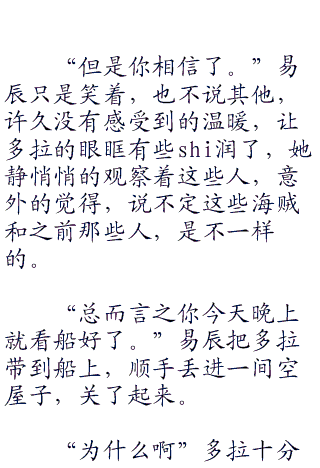 “但是你相信了。”易
辰只是笑着，也不说其他，
许久没有感受到的温暖，让
多拉的眼眶有些shi润了，她
静悄悄的观察着这些人，意
外的觉得，说不定这些海贼
和之前那些人，是不一样
的。
“总而言之你今天晚上
就看船好了。”易辰把多拉
带到船上，顺手丢进一间空
屋子，关了起来。
“为什么啊”多拉十分